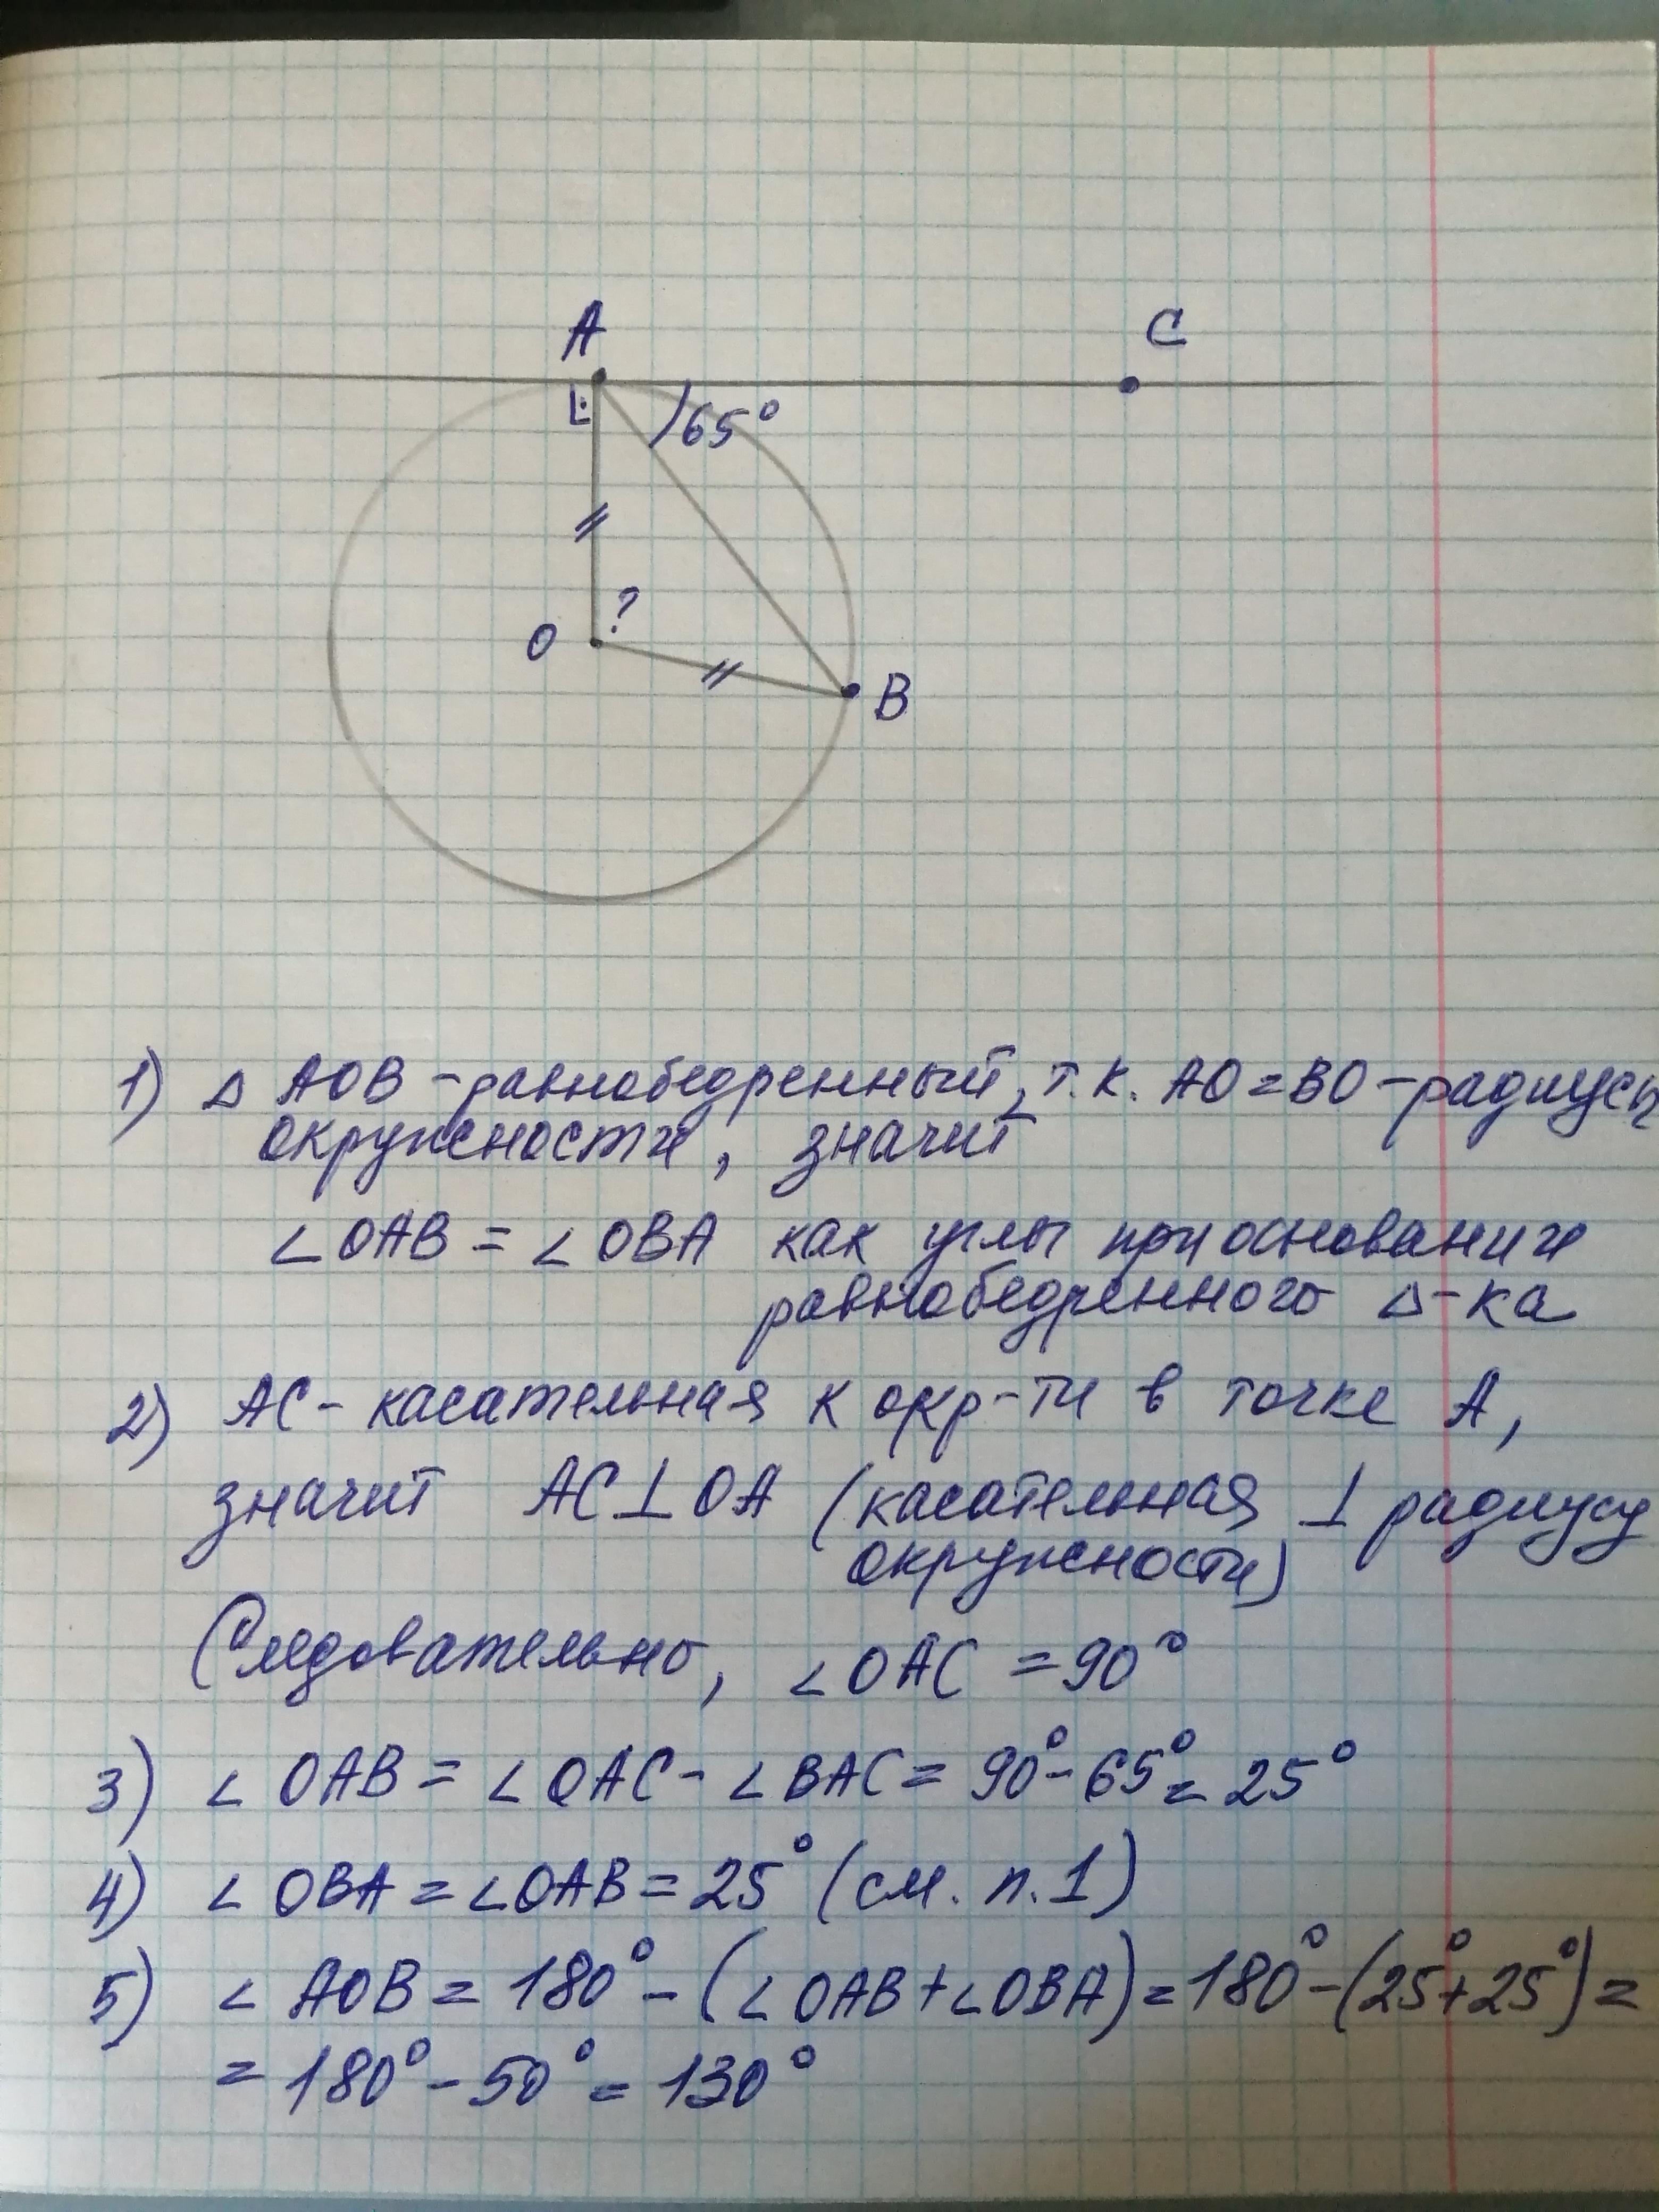 A
C
65°
?
O
B
1) △ AOB - равнобедренный, т.к. AO = BO - радиусы
окружности, значит
∠OAB = ∠OBA как углы при основании
равнобедренного △-ка
2) AC - касательная к окр-ти в точке A,
значит AC⊥OA (касательная ⊥ радиусу
окружности)
Следовательно, ∠OAC = 90°
3) ∠OAB = ∠OAC - ∠BAC = 90° - 65° = 25°
4) ∠OBA = ∠OAB = 25° (см. п.1)
5) ∠AOB = 180° - (∠OAB + ∠OBA) = 180° - (25° + 25°) =
= 180° - 50° = 130°